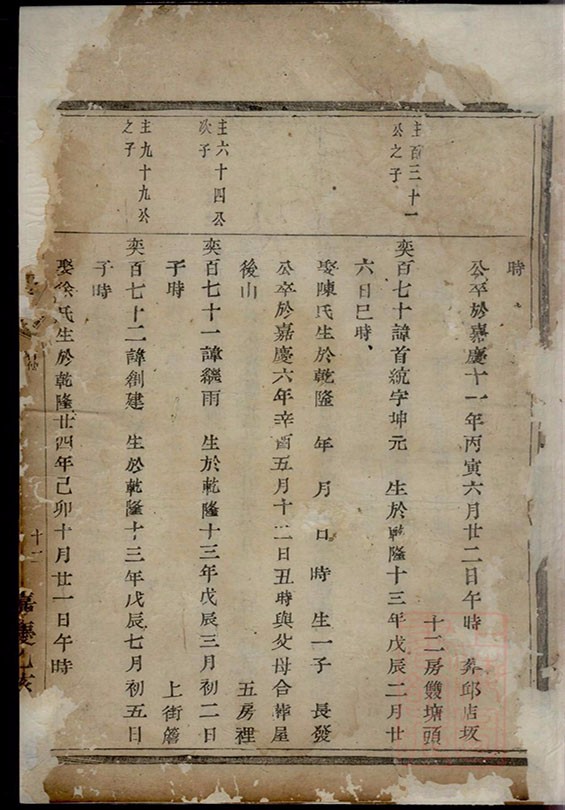 時
公卒於嘉慶十一年丙寅六月廿二日午時 葬邱店坂
十二房雙塘頭
主百三十一
公之子
奕百七十諱首統字坤元 生於乾隆十三年戊辰二月廿
六日巳時、
娶陳氏生於乾隆 年 月 日 時 生一子 長發
公卒於嘉慶六年辛酉五月十二日丑時與父母合葬屋
後山 五房裡
主六十四公
次子
奕百七十一諱繼雨 生於乾隆十三年戊辰三月初二日
子時 上街簷
主九十九公
之子
奕百七十二諱創建 生於乾隆十三年戊辰七月初五日
子時
娶徐氏生於乾隆廿四年己卯十月廿一日午時
十二
嘉慶乙亥